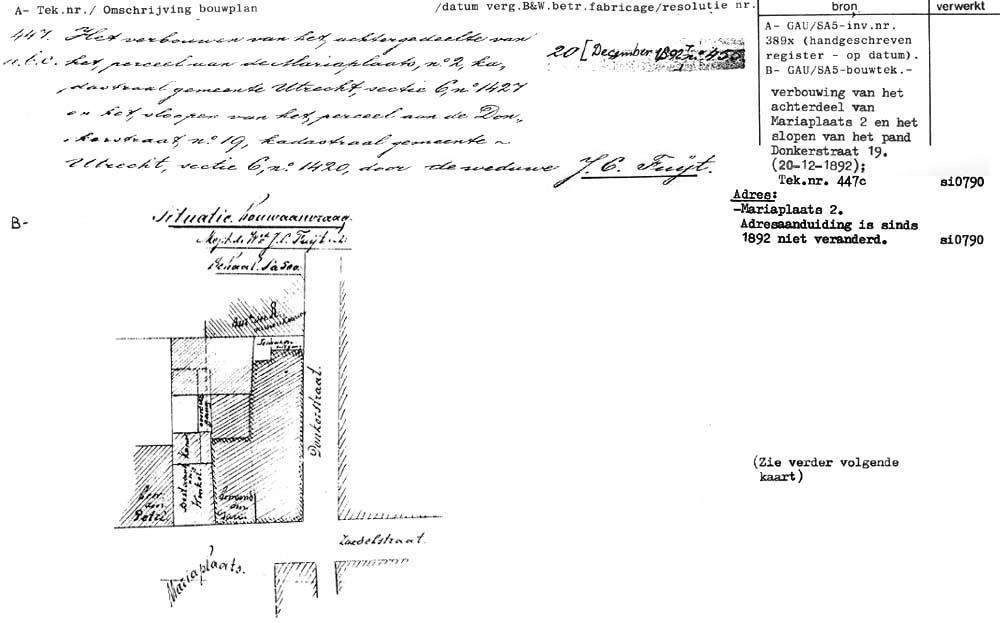 A- Tek.nr./ Omschrijving bouwplan
/datum verg.B&W.betr.fabricage/resolutie nr.
bron
verwerkt
447. Het verbouwen van het, achtergedeelte van
a.b.c. het, perceel aan de Mariaplaats, nº 2, ka,
dastraal gemeente Utrecht, sectie C, nº 1427
en het, sloopen van het, perceel aan de Don,
kerstraat, nº 19, kadastraal gemeente ~
Utrecht, sectie C, nº 1420, door de weduwe J. C. Fuijt.
20 [December 1892
A- GAU/SA5-inv.nr.
389x (handgeschreven
register - op datum).
B- GAU/SA5-bouwtek.-
verbouwing van het
achterdeel van
Mariaplaats 2 en het
slopen van het pand
Donkerstraat 19.
(20-12-1892);
Tek.nr. 447c
si0790
Adres:
-Mariaplaats 2.
Adresaanduiding is sinds
1892 niet veranderd.
si0790
B-
Situatie. bouwaanvraag.
J. C. Fuijt
Schaal. 1 à 500.
Donkerstraat.
Bestaand
Winkel.
Zadelstraat.
Mariaplaats.
(Zie verder volgende
kaart)